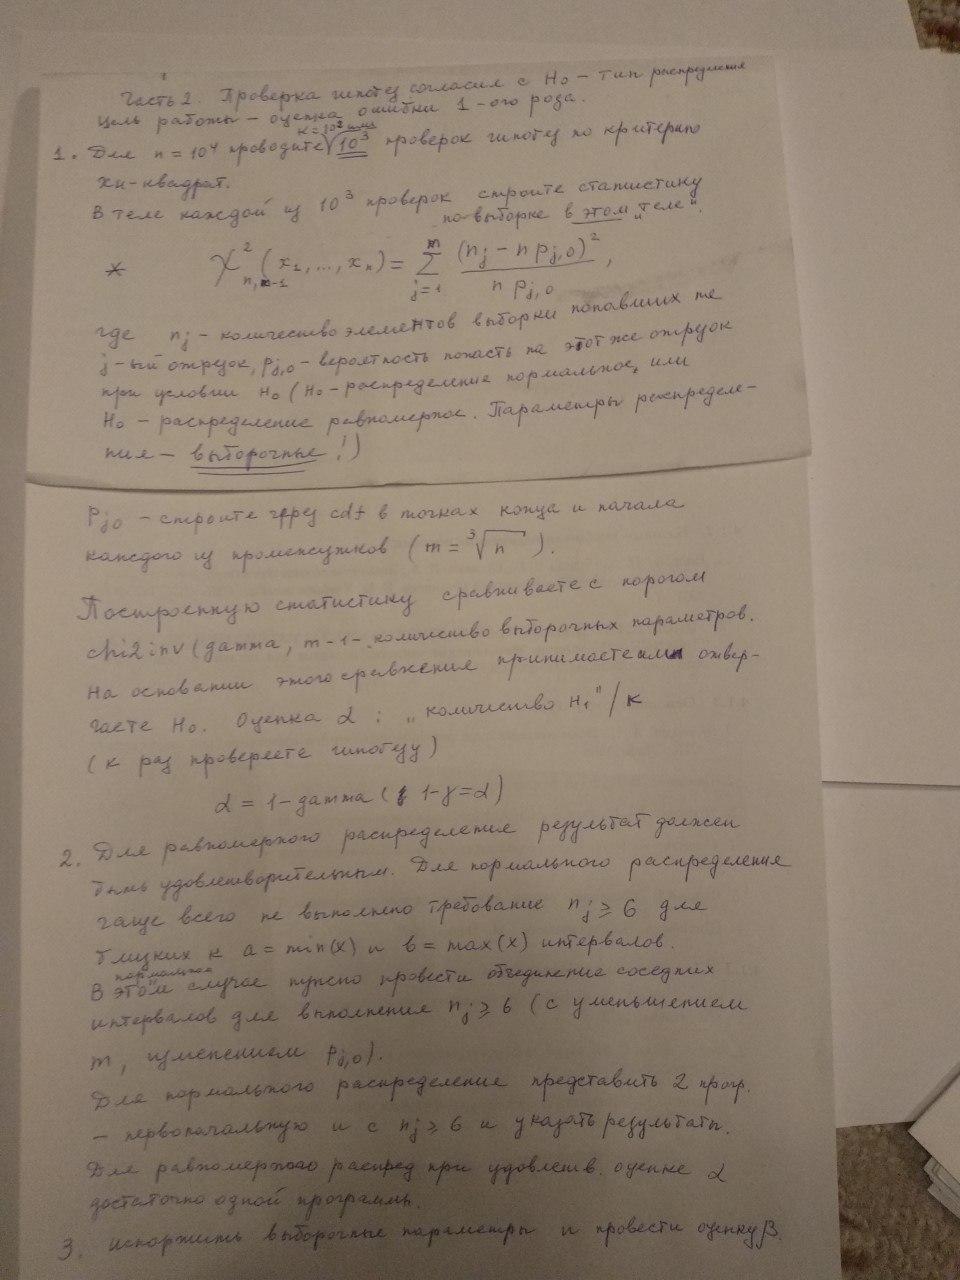 Часть 2. Проверка гипотез согласия с H₀ – тип распределения
Цель работы – оценка ошибки 1-ого рода.
K = 10² или
1. Для n = 10⁴ проводите 10³ проверок гипотез по критерию
хи-квадрат.
В теле каждой из 10³ проверок строите статистику
по выборке в этом "теле".
* χ²ₙ,ₘ₋₁ (x₁, ..., xₙ) = Σ (nⱼ – n pⱼ,₀)² / n pⱼ,₀ ,
m
j=1
где nⱼ – количество элементов выборки попавших на
j-ый отрезок, pⱼ,₀ – вероятность попасть на этот же отрезок
при условии H₀ (H₀ – распределение нормальное, или
H₀ – распределение равномерное. Параметры распределе-
ния – выборочные!)
Pⱼ₀ – строите через cdf в точках конца и начала
каждого из промежутков (m = ³√n ).
Построенную статистику сравниваете с порогом
chi2inv (gamma, m-1- количество выборочных параметров.
На основании этого сравнения принимаете или отвер-
гаете H₀. Оценка α : "количество H₁" / K
(K раз проверяете гипотезу)
α = 1 – гамма ( 1-γ=α)
2. Для равномерного распределения результат должен
быть удовлетворительным. Для нормального распределения
чаще всего не выполнено требование nⱼ ≥ 6 для
близких к a = min(x) и b = max(x) интервалов.
нормальное
В этом случае нужно провести объединение соседних
интервалов для выполнения nⱼ ≥ 6 (с уменьшением
m, изменением pⱼ,₀).
Для нормального распределения представить 2 прогр.
– первоначальную и с nⱼ ≥ 6 и указать результаты.
Для равномерного распред при удовлетв. оценке α
достаточно одной программы.
3. испортить выборочные параметры и провести оценку β.